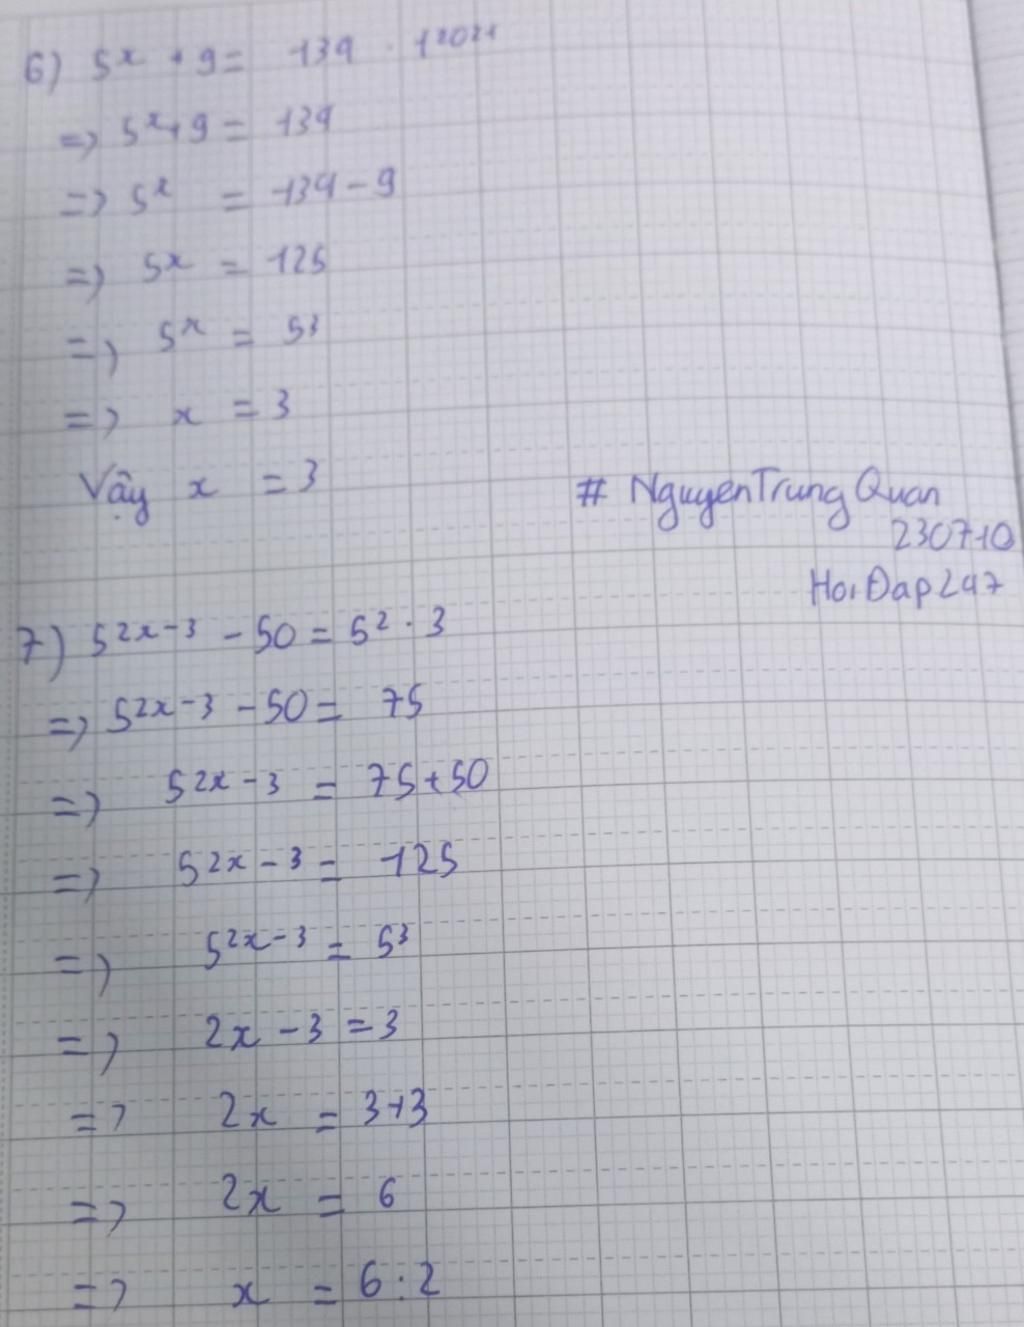 6) 5ˣ + 9 = 134 . 1²⁰²¹
=> 5ˣ + 9 = 134
=> 5ˣ = 134 - 9
=> 5ˣ = 125
=> 5ˣ = 5³
=> x = 3
Vậy x = 3
# NguyenTrungQuan
230710
HoiĐap247
7) 5²ˣ⁻³ - 50 = 5² . 3
=> 5²ˣ⁻³ - 50 = 75
=> 5²ˣ⁻³ = 75 + 50
=> 5²ˣ⁻³ = 125
=> 5²ˣ⁻³ = 5³
=> 2x - 3 = 3
=> 2x = 3+3
=> 2x = 6
=> x = 6 : 2